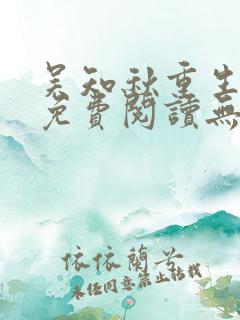 吴知秋重生
免費閱讀無
依依蘭兮
未經同意禁止轉載